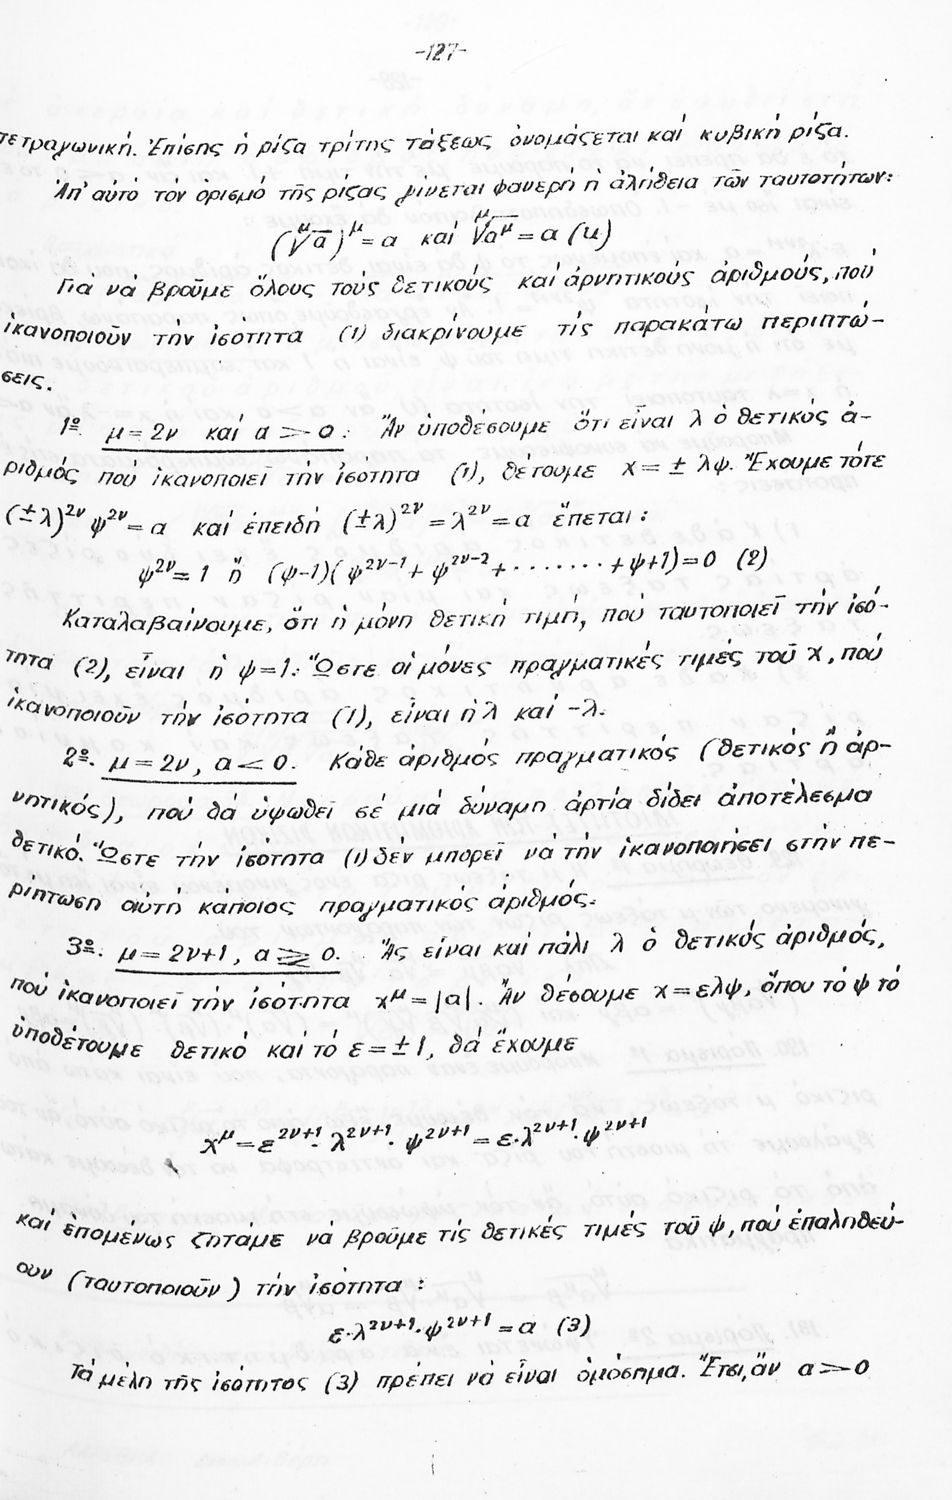 -127-
τετραγωνική. Ἐπίσης ἡ ρίζα τρίτης τάξεως ὀνομάζεται καί κυβική ρίζα.
Ἀπ' αὐτό τόν ὁρισμό τῆς ρίζας γίνεται φανερή ἡ ἀλήθεια τῶν ταυτοτήτων:
(ᵘ√a)^μ = a καί ᵘ√a^μ = a (u)
Γιά νά βροῦμε ὅλους τούς θετικούς καί ἀρνητικούς ἀριθμούς, πού
ἱκανοποιοῦν τήν ἰσότητα (1) διακρίνουμε τίς παρακάτω περιπτώ-
σεις.
1º. μ = 2ν καί α > 0: Ἄν ὑποθέσουμε ὅτι εἶναι λ ὁ θετικός ἀ-
ριθμός πού ἱκανοποιεῖ τήν ἰσότητα (1), θέτουμε x = ± λψ. Ἔχουμε τότε
(±λ)^2ν ψ^2ν = a καί ἐπειδή (±λ)^2ν = λ^2ν = a ἕπεται:
ψ^2ν = 1 ἤ (ψ-1)(ψ^2ν-1 + ψ^2ν-2 + ........ + ψ+1) = 0 (2)
Καταλαβαίνουμε, ὅτι ἡ μόνη θετική τιμή, πού ταυτοποιεῖ τήν ἰσό-
τητα (2), εἶναι ἡ ψ=1. Ὥστε οἱ μόνες πραγματικές τιμές τοῦ x, πού
ἱκανοποιοῦν τήν ἰσότητα (1), εἶναι ἡ λ καί -λ.
2º. μ = 2ν, α < 0. Κάθε ἀριθμός πραγματικός (θετικός ἤ ἀρ-
νητικός), πού θά ὑψωθεῖ σέ μιά δύναμη ἀρτία δίδει ἀποτέλεσμα
θετικό. Ὥστε τήν ἰσότητα (1) δέν μπορεῖ νά τήν ἱκανοποιήσει στήν πε-
ρίπτωση αὐτή κάποιος πραγματικός ἀριθμός.
3º. μ = 2ν+1, α ≷ 0. Ἄς εἶναι καί πάλι λ ὁ θετικός ἀριθμός,
πού ἱκανοποιεῖ τήν ἰσότητα x^μ = |a|. Ἄν θέσουμε x = ελψ, ὅπου τό ψ τό
ὑποθέτουμε θετικό καί τό ε = ± 1, θά ἔχουμε
x^μ = ε^2ν+1 · λ^2ν+1 · ψ^2ν+1 = ε·λ^2ν+1·ψ^2ν+1
καί ἑπομένως ζητᾶμε νά βροῦμε τίς θετικές τιμές τοῦ ψ, πού ἐπαληθεύ-
ουν (ταυτοποιοῦν) τήν ἰσότητα:
ε·λ^2ν+1·ψ^2ν+1 = a (3)
Τά μέλη τῆς ἰσότητος (3) πρέπει νά εἶναι ὁμόσημα. Ἔτσι, ἄν α > 0